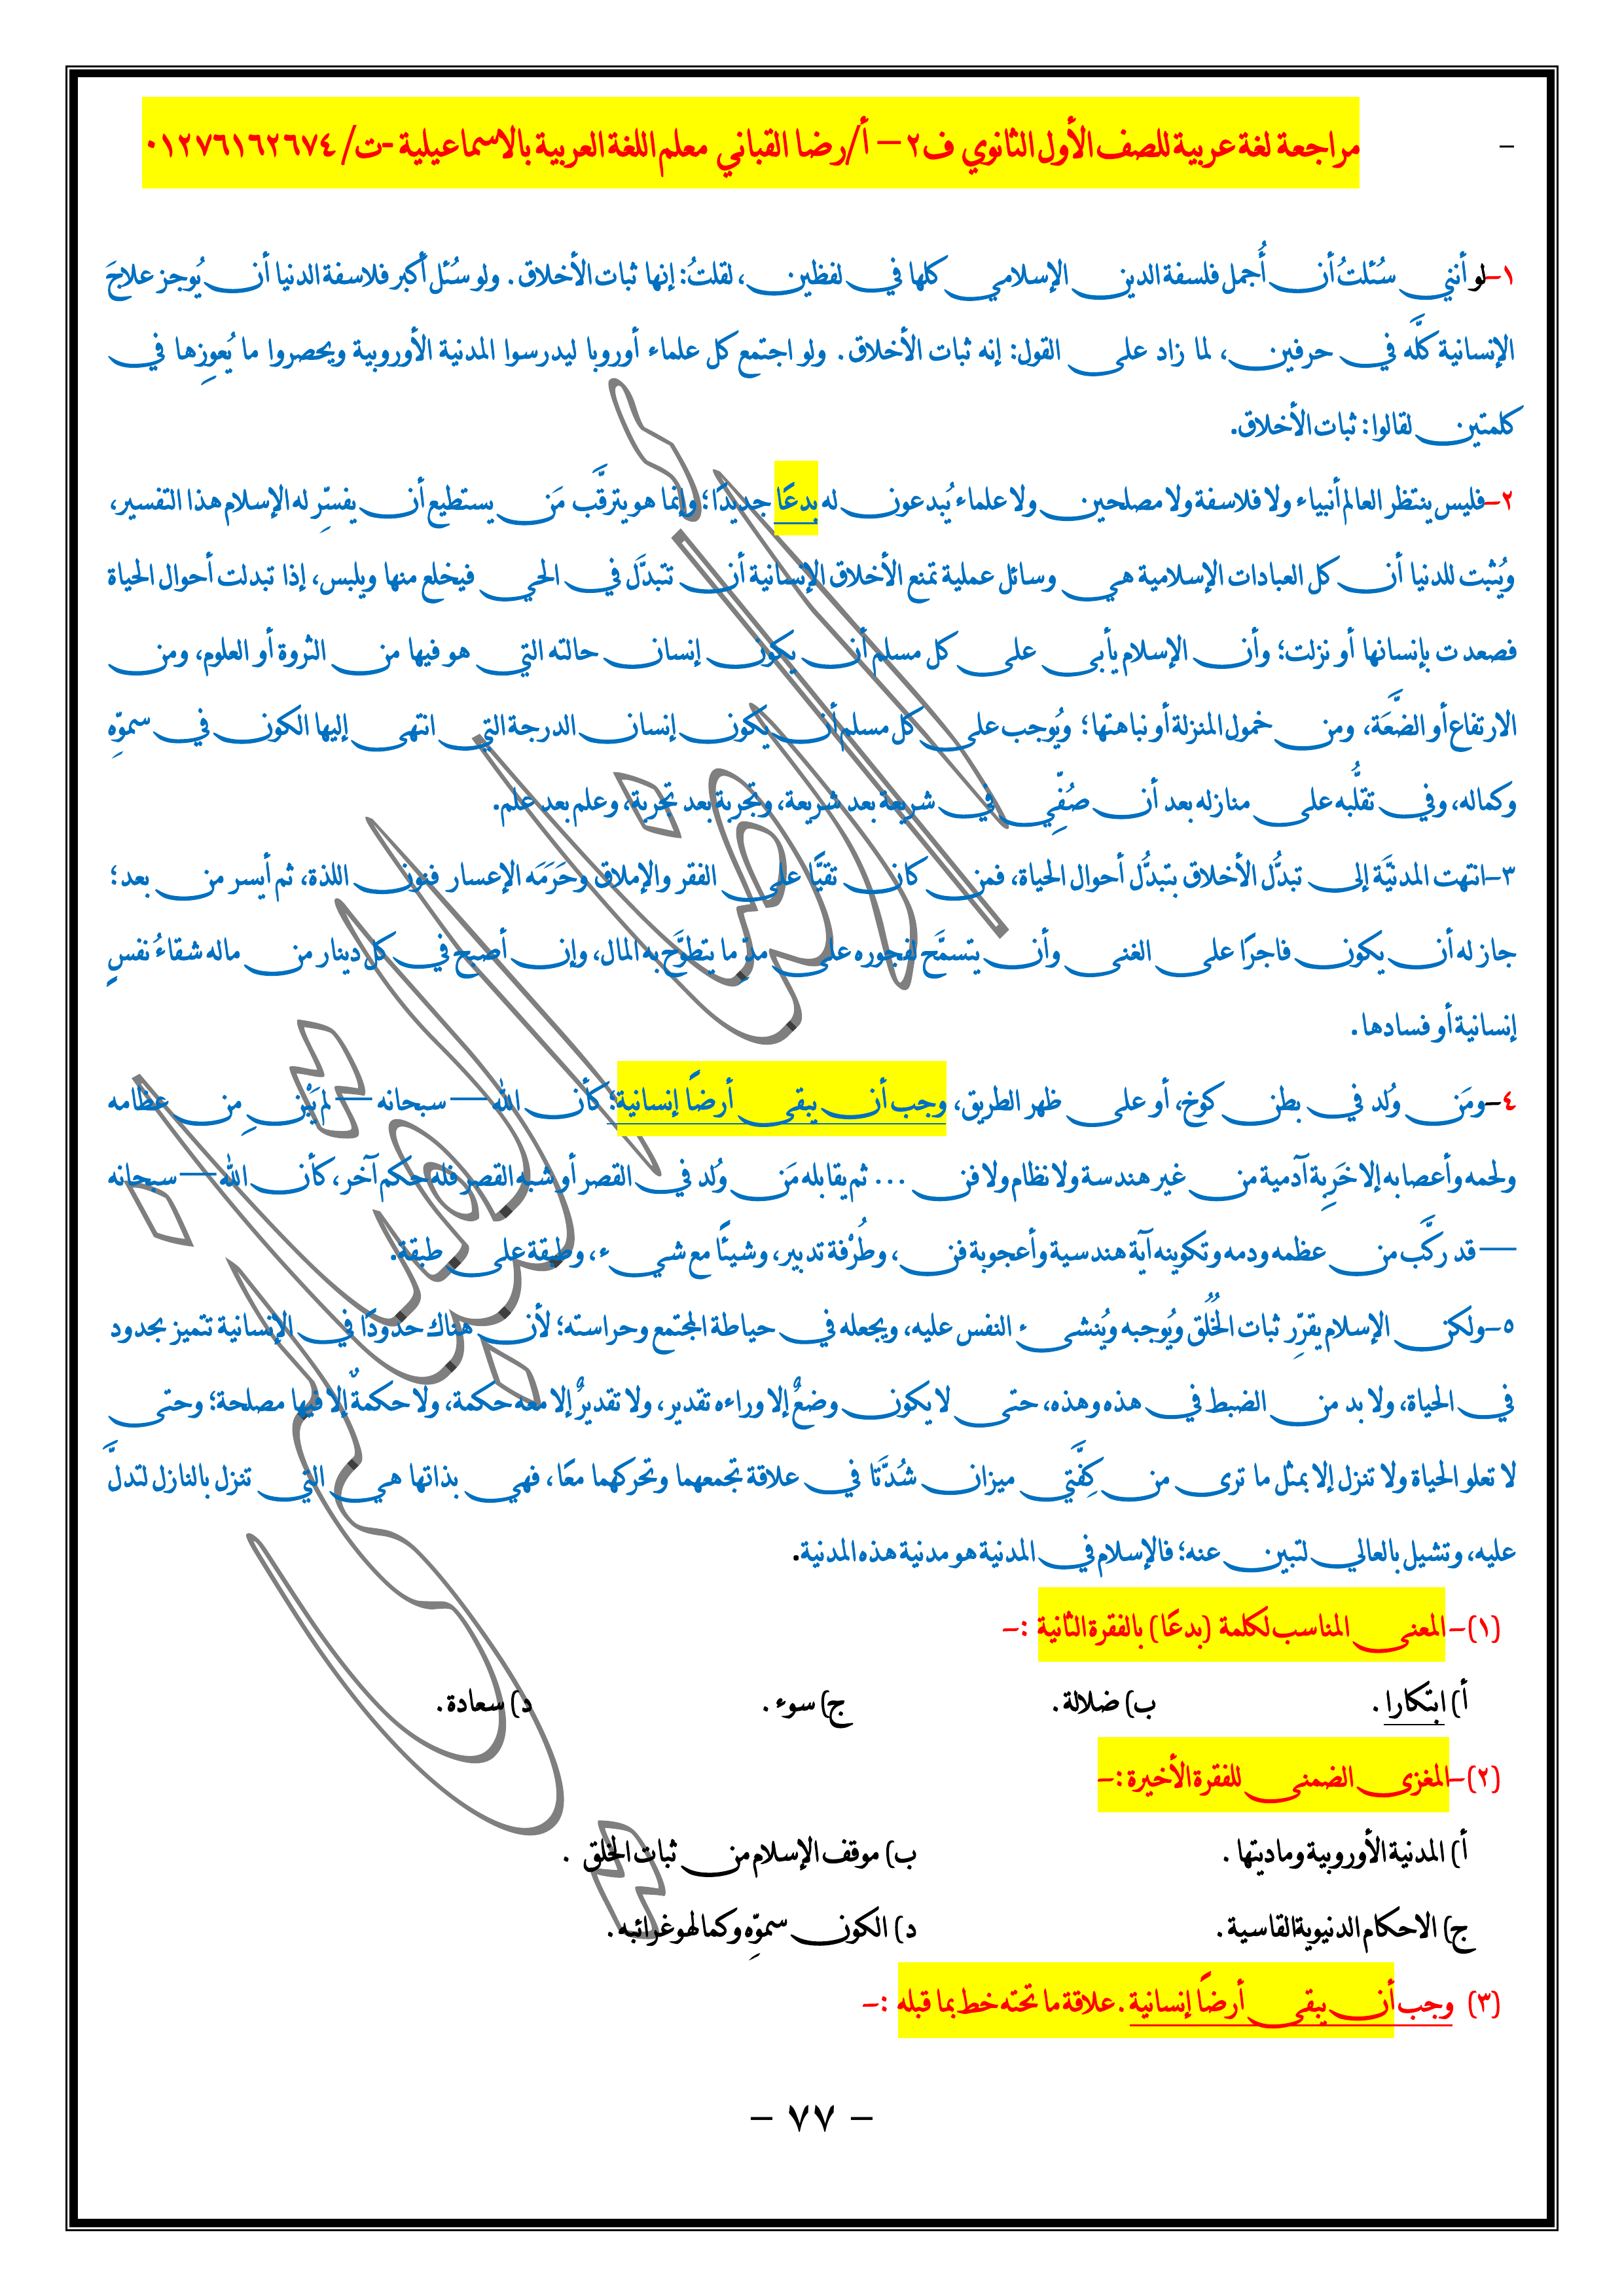 - مراجعة لغة عربية للصف الأول الثانوي ف٢ – أ/رضا القباني معلم اللغة العربية بالاسماعيلية -ت/ ٠١٢٧٦١٦٢٦٧٤
١-لو أنني سُئلتُ أن أُجمل فلسفة الدين الإسلامي كلها في لفظين، لقلتُ: إنها ثبات الأخلاق. ولو سُئل أكبر فلاسفة الدنيا أن يُوجز علاجَ
الإنسانية كلَّه في حرفين، لما زاد على القول: إنه ثبات الأخلاق. ولو اجتمع كل علماء أوروبا ليدرسوا المدنية الأوروبية ويحصروا ما يُعوِزها في
كلمتين لقالوا: ثبات الأخلاق.
٢-فليس ينتظر العالم أنبياء ولا فلاسفة ولا مصلحين ولا علماء يُبدعون له بدعًا جديدًا؛ وإنما هو يترقَّب مَن يستطيع أن يفسِّر له الإسلام هذا التفسير،
ويُثبت للدنيا أن كل العبادات الإسلامية هي وسائل عملية تمنع الأخلاق الإنسانية أن تتبدَّل في الحي فيخلع منها ويلبس، إذا تبدلت أحوال الحياة
فصعدت بإنسانها أو نزلت؛ وأن الإسلام يأبى على كل مسلم أن يكون إنسان حالته التي هو فيها من الثروة أو العلوم، ومن
الارتفاع أو الضَّعَة، ومن خمول المنزلة أو نباهتها؛ ويُوجب على كل مسلم أن يكون إنسان الدرجة التي انتهى إليها الكون في سموِّه
وكماله، وفي تقلُّبه على منازله بعد أن صُفِّي في شريعة بعد شريعة، وتجربة بعد تجربة، وعلم بعد علم.
٣-انتهت المدنيَّة إلى تبدُّل الأخلاق بتبدُّل أحوال الحياة، فمن كان تقيًّا على الفقر والإملاق وحَرَمَه الإعسار فنون اللذة، ثم أيسر من بعد؛
جاز له أن يكون فاجرًا على الغنى وأن يتسمَّح لفجوره على مدِّ ما يتطوَّح به المال، وإن أصبح في كل دينار من ماله شقاءُ نفسٍ
إنسانية أو فسادها.
٤-ومَن وُلد في بطن كوخ، أو على ظهر الطريق، وجب أن يبقى أرضًا إنسانية؛ كأن الله — سبحانه — لم يَبْنِ من عظامه
ولحمه وأعصابه إلا خَرِبة آدمية من غير هندسة ولا نظام ولا فن … ثم يقابله مَن وُلد في القصر أو شبه القصر فله حكم آخر، كأن الله — سبحانه
— قد ركَّب من عظمه ودمه وتكوينه آية هندسية وأعجوبة فن، وطُرْفة تدبير، وشيئًا مع شيء، وطبقة على طبقة.
٥-ولكن الإسلام يقرِّر ثبات الخُلُق ويُوجبه ويُنشىء النفس عليه، ويجعله في حياطة المجتمع وحراسته؛ لأن هناك حدودًا في الإنسانية تتميز بحدود
في الحياة، ولا بد من الضبط في هذه وهذه، حتى لا يكون وضعٌ إلا وراءه تقدير، ولا تقديرٌ إلا معه حكمة، ولا حكمةٌ إلا فيها مصلحة؛ وحتى
لا تعلو الحياة ولا تنزل إلا بمثل ما ترى من كِفَّتي ميزان شُدَّتا في علاقة تجمعهما وتحركهما معًا، فهي بذاتها هي التي تنزل بالنازل لتدلَّ
عليه، وتشيل بالعالي لتبين عنه؛ فالإسلام في المدنية هو مدنية هذه المدنية.
(١)- المعنى المناسب لكلمة (بدعًا) بالفقرة الثانية :-
أ) ابتكارا . ب) ضلالة . ج) سوء . د) سعادة .
(٢)-المغزى الضمنى للفقرة الأخيرة :-
أ) المدنية الأوروبية وماديتها . ب) موقف الإسلام من ثبات الخلق .
ج) الاحكام الدنيوية القاسية . د) الكون سموِّه وكمالهو غرائبه .
(٣) وجب أن يبقى أرضًا إنسانية . علاقة ما تحته خط بما قبله :-
- ٧٧ -